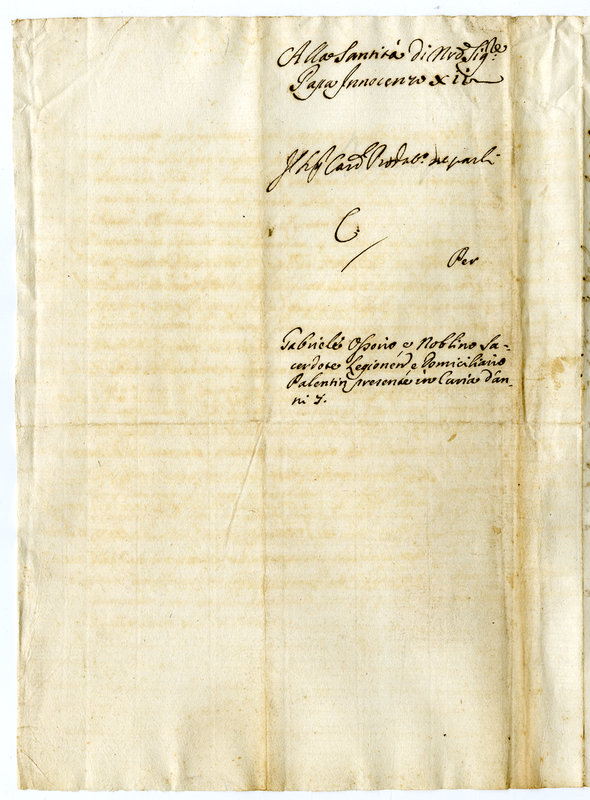 Alla Santità di Nrõ Sigre
Papa Innocenzo XII
Card Prodat.o ne parli
Per
Gabriele Osorio e Noblino Sa=
cerdote Legionen e Domiciliario
Palentin presente in Curia d'an=
ni